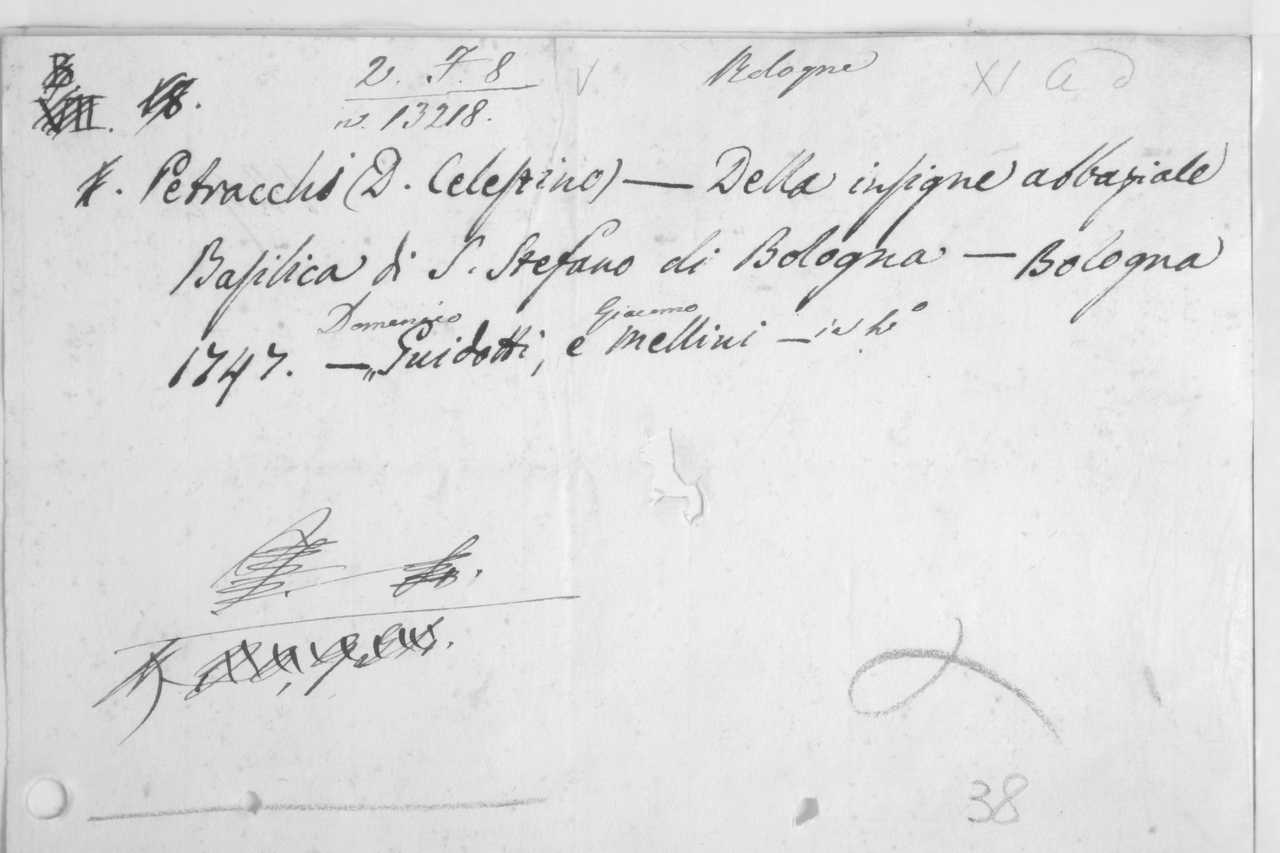 B
18.
2. F. 8
n. 13218.
V
Bologne
XI a d
Petracchi (D. Celeſtino) — Della inſigne abbaziale
Baſilica di S. Stefano di Bologna — Bologna
Domenico Giacomo
1747. — Guidotti, e Mellini — in 4.°
38